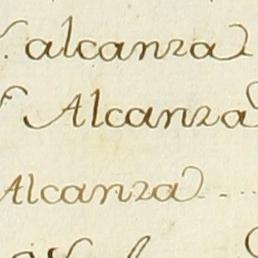 alcanza
Alcanza
Alcanza....